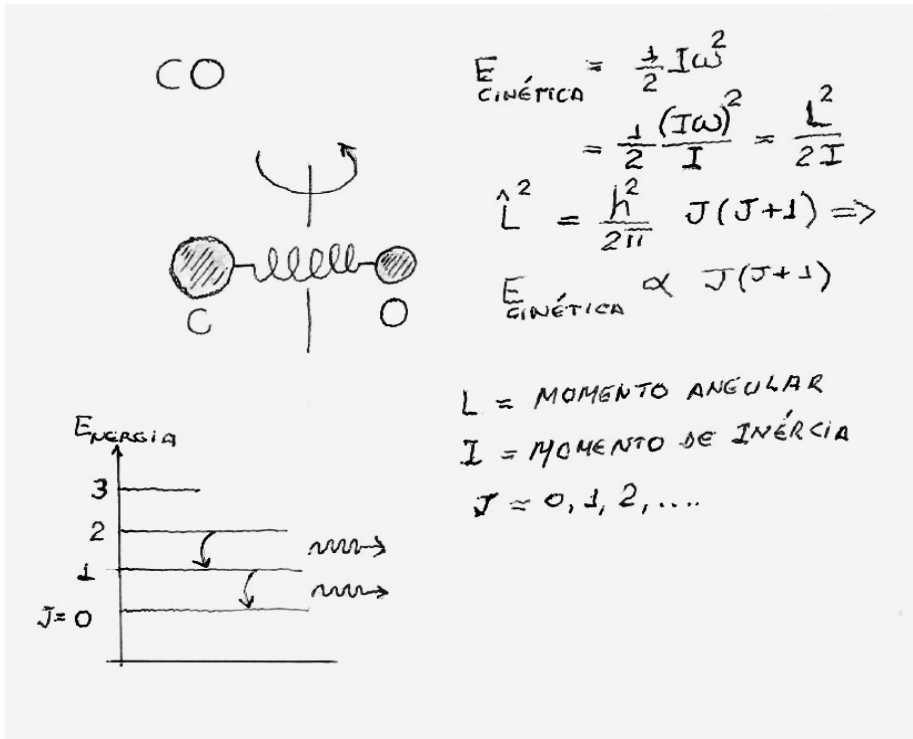 CO
C O
E CINÉTICA = 1/2 Iω²
= 1/2 (Iω)²/I = L²/2I
L̂² = h²/2π J(J+1) =>
E CINÉTICA ∝ J(J+1)
L = MOMENTO ANGULAR
I = MOMENTO DE INÉRCIA
J = 0, 1, 2, ....
ENERGIA
3
2
1
J= 0